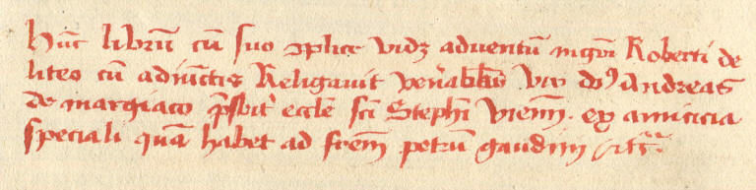 Hūc librū cū suo ꝯplice vidꝫ adventū mgrī Roberti de
liteo cū adiūctis Religavit venˀabilis vir doꝰ Andreas
de margiaco p̄sbitˀ eccl̄e sc̄i Steph̄i vienn̄. ex amicicia
speciali quā habet ad fr̄em petrū gaudini